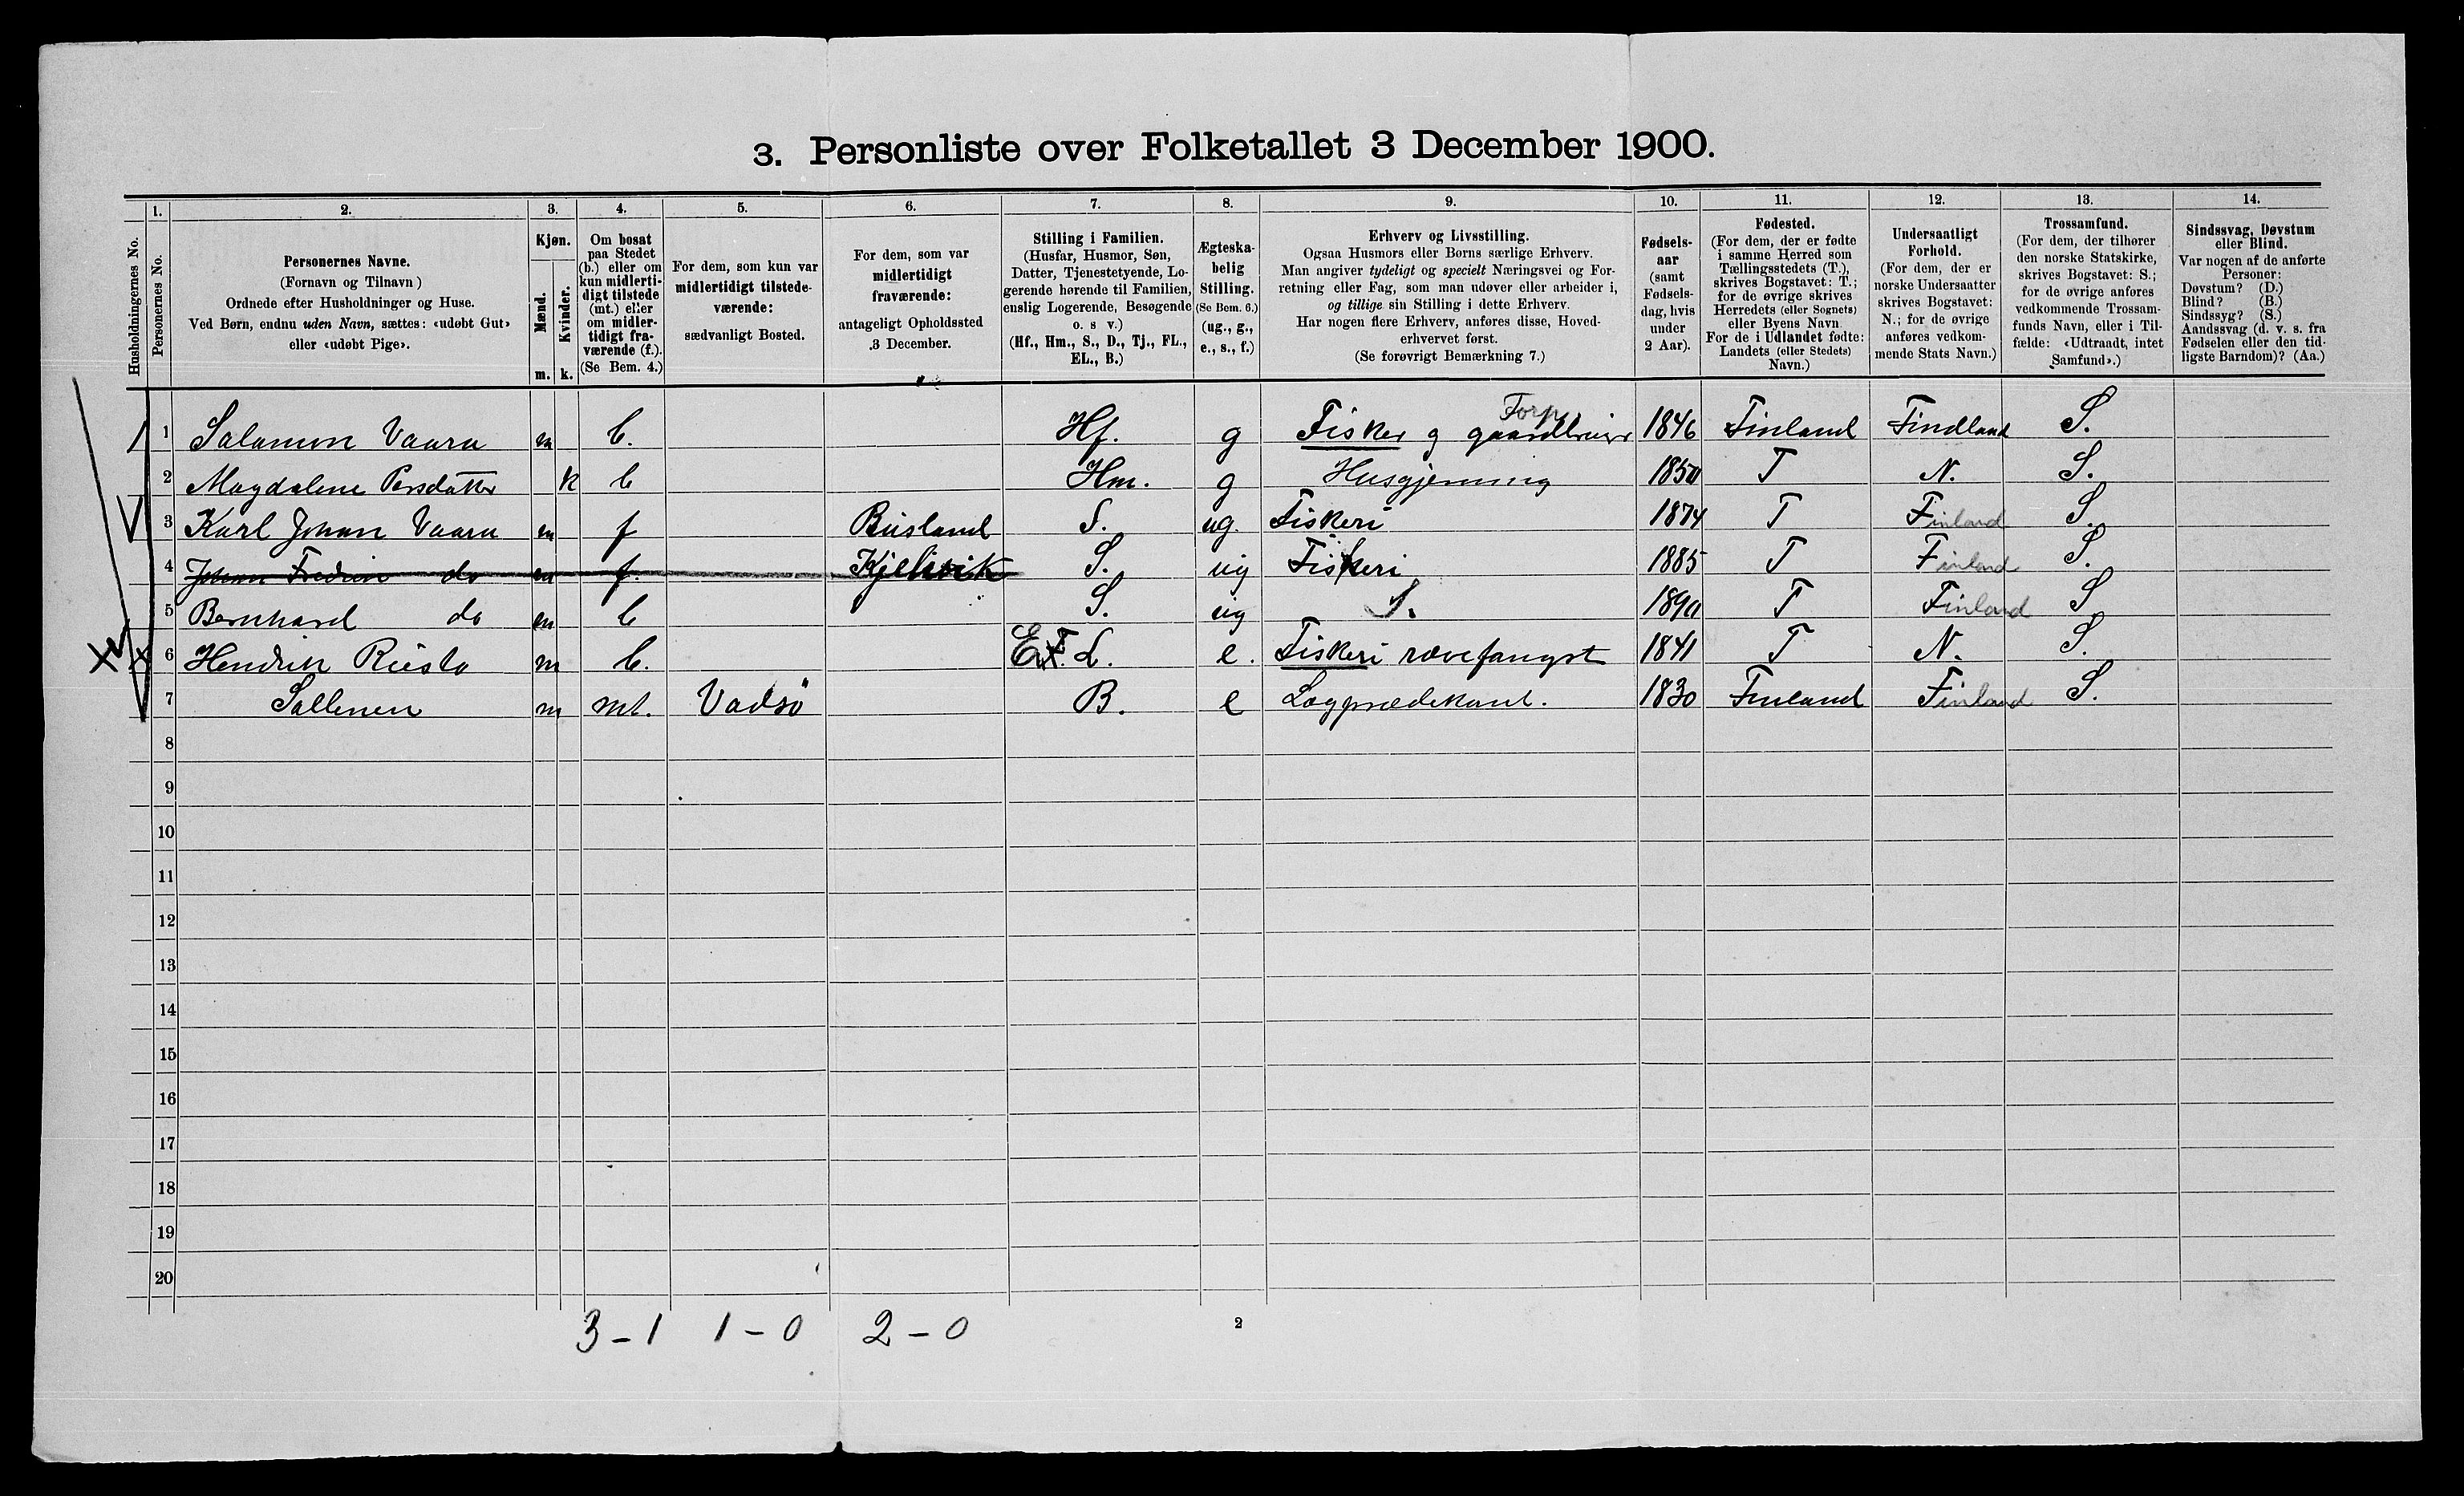 3. Personliste over Folketallet 3 December 1900.
1. 2. 3. 4. 5. 6. 7. 8. 9. 10. 11. 12. 13. 14.
Husholdningernes No.
Personernes No.
Personernes Navne.
(Fornavn og Tilnavn)
Ordnede efter Husholdninger og Huse.
Ved Børn, endnu uden Navn, sættes: «udøbt Gut»
eller «udøbt Pige».
Kjøn.
Mænd.
Kvinder.
m. k.
Om bosat
paa Stedet
(b.) eller om
kun midlerti-
digt tilstede
(mt.) eller
om midler-
tidigt fra-
værende (f.).
(Se Bem. 4.)
For dem, som kun var
midlertidigt tilstede-
værende:
sædvanligt Bosted.
For dem, som var
midlertidigt
fraværende:
antageligt Opholdssted
3 December.
Stilling i Familien.
(Husfar, Husmor, Søn,
Datter, Tjenestetyende, Lo-
gerende hørende til Familien,
enslig Logerende, Besøgende
o. s v.)
(Hf., Hm., S., D., Tj., FL.,
EL., B.)
Ægteska-
belig
Stilling.
(Se Bem. 6.)
(ug., g.,
e., s., f.)
Erhverv og Livsstilling.
Ogsaa Husmors eller Børns særlige Erhverv.
Man angiver tydeligt og specielt Næringsvei og For-
retning eller Fag, som man udøver eller arbeider i,
og tillige sin Stilling i dette Erhverv.
Har nogen flere Erhverv, anføres disse, Hoved-
erhvervet først.
(Se forøvrigt Bemærkning 7.)
Fødsels-
aar
(samt
Fødsels-
dag, hvis
under
2 Aar).
Fødested.
(For dem, der er fødte
i samme Herred som
Tællingsstedets (T.),
skrives Bogstavet: T.;
for de øvrige skrives
Herredets (eller Sognets)
eller Byens Navn.
For de i Udlandet fødte:
Landets (eller Stedets)
Navn.)
Undersaatligt
Forhold.
(For dem, der er
norske Undersaatter
skrives Bogstavet:
N.; for de øvrige
anføres vedkom-
mende Stats Navn.)
Trossamfund.
(For dem, der tilhører
den norske Statskirke,
skrives Bogstavet: S.;
for de øvrige anføres
vedkommende Trossam-
funds Navn, eller i Til-
fælde: «Udtraadt, intet
Samfund».)
Sindssvag, Døvstum
eller Blind.
Var nogen af de anførte
Personer:
Døvstum? (D.)
Blind? (B.)
Sindssyg? (S.)
Aandssvag (d. v. s. fra
Fødselen eller den tid-
ligste Barndom)? (Aa.)
1 Salamon Vaara m b. Hf. g Fisker g gaardbruger 1846 Finland Findland S.
2 Magdalene Persdatter k b Hm. g Husgjerning 1850 T N. S.
3 Karl Johan Vaara m f Busland S. ug. Fiskeri 1874 T Finland S.
4 Johan Fredrik do m f. Kjelvik S. ug Fiskeri 1885 T Finland S.
5 Bernhard do m b S. ug S. 1890 T Finland S
6 Hendrik Riesto m b. L. e. Fiskeri rævefangst 1841 T N. S.
7 Sallinen m mt. Vadsö B. e Lægprædikant. 1830 Finland Finland S.
8
9
10
11
12
13
14
15
16
17
18
19
20
3-1 1-0 2-0
2